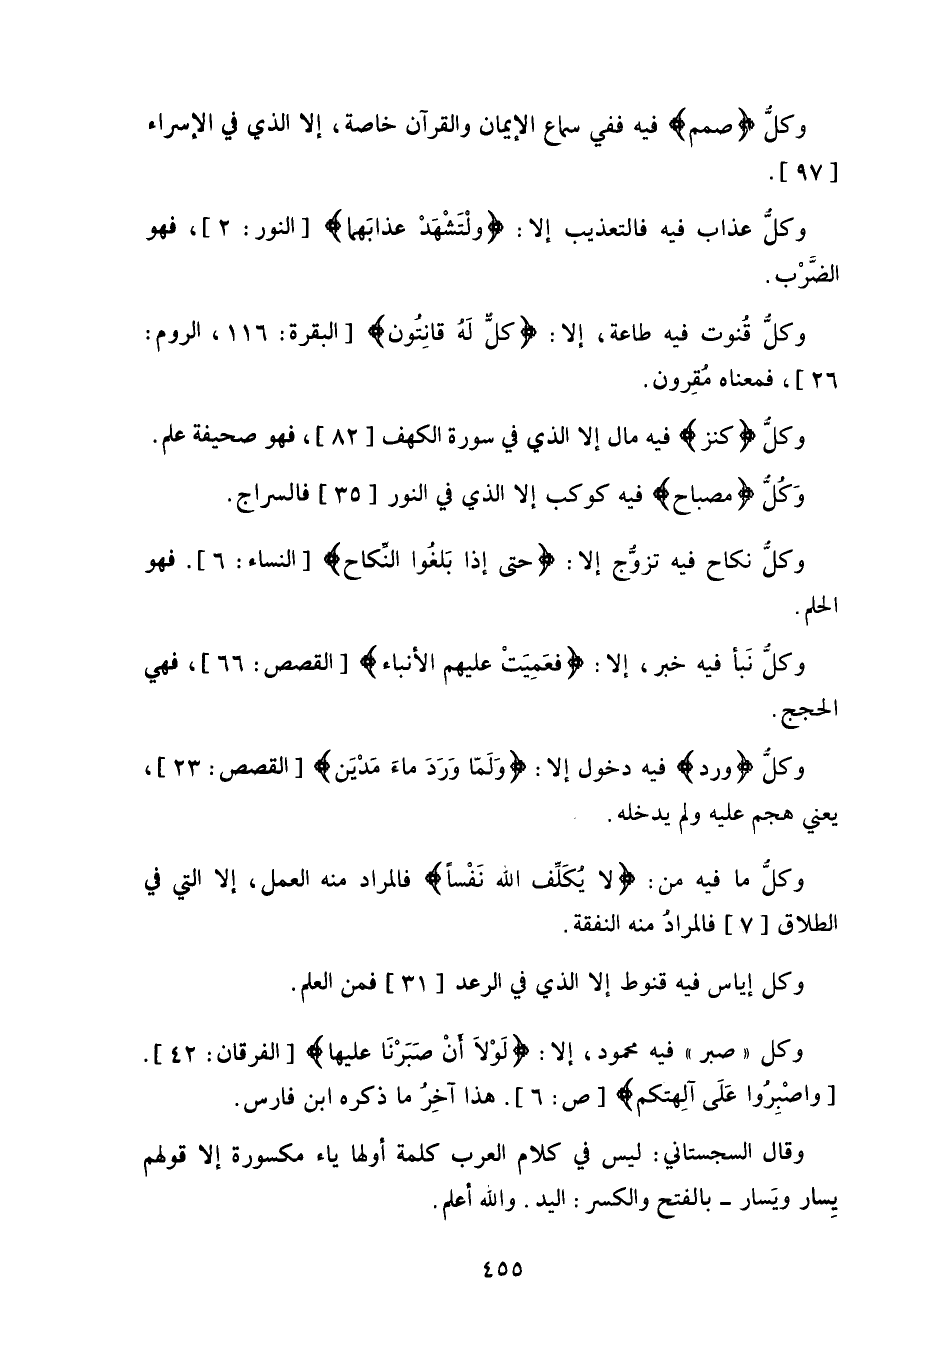 وكلُّ ﴿صمم﴾ فيه ففي سماع الإيمان والقرآن خاصة، إلا الذي في الإسراء
[ ٩٧ ].
وكلُّ عذاب فيه فالتعذيب إلا: ﴿ولْتَشْهَدْ عذابَهما﴾ [ النور: ٢ ]، فهو
الضَّرْب.
وكلُّ قُنوت فيه طاعة، إلا: ﴿كلٌّ لَهُ قانِتُون﴾ [ البقرة: ١١٦، الروم:
٢٦ ]، فمعناه مُقِرون.
وكلُّ ﴿كنز﴾ فيه مال إلا الذي في سورة الكهف [ ٨٢ ]، فهو صحيفة علم.
وَكُلُّ ﴿مصباح﴾ فيه كوكب إلا الذي في النور [ ٣٥ ] فالسراج.
وكلُّ نكاح فيه تزوُّج إلا: ﴿حتى إذا بَلغُوا النِّكاح﴾ [ النساء: ٦ ]. فهو
الحلم.
وكلُّ نَبأ فيه خبر، إلا: ﴿فعَمِيَتْ عليهم الأنباء﴾ [ القصص: ٦٦ ]، فهي
الحجج.
وكلُّ ﴿ورد﴾ فيه دخول إلا: ﴿وَلَمّا وَرَدَ ماءَ مَدْيَن﴾ [ القصص: ٢٣ ]،
يعني هجم عليه ولم يدخله.
وكلُّ ما فيه من: ﴿لا يُكَلِّف الله نَفْساً﴾ فالمراد منه العمل، إلا التي في
الطلاق [ ٧ ] فالمرادُ منه النفقة.
وكل إياس فيه قنوط إلا الذي في الرعد [ ٣١ ] فمن العلم.
وكل « صبر » فيه محمود، إلا: ﴿لَوْلاَ أَنْ صَبَرْنَا عليها﴾ [ الفرقان: ٤٢ ].
[ واصْبِرُوا عَلَى آلِهتكم﴾ [ ص: ٦ ]. هذا آخِرُ ما ذكره ابن فارس.
وقال السجستاني: ليس في كلام العرب كلمة أولها ياء مكسورة إلا قولهم
يِسار ويَسار ـ بالفتح والكسر: اليد. والله أعلم.
٤٥٥